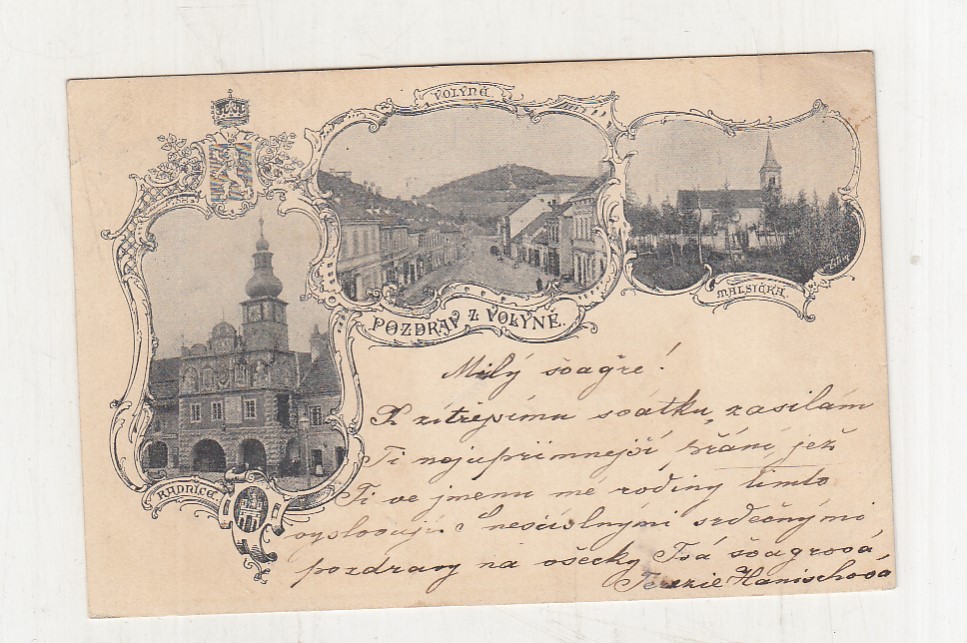 VOLYNĚ.
POZDRAV Z VOLYNĚ.
MALSIČKA.
RADNICE.
Milý švagře!
K zítřejšímu svátku, zasílám
Ti nejupřimnejší přání, jež
Ti ve jmenu mé rodiny timto
vyslovuji. S nesčíslnými srdečnými
pozdravy na všecky Tvá švagrová
Terezie Hanischová